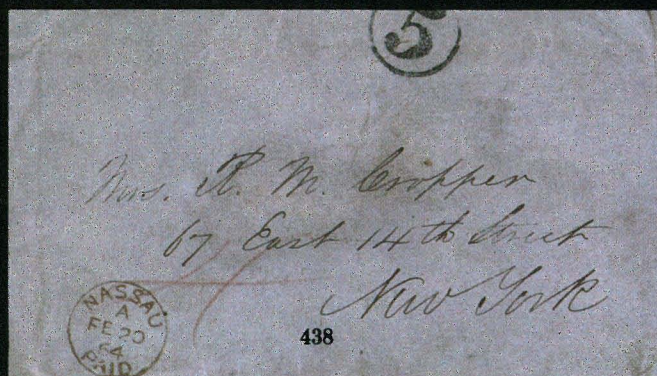 5
Mrs. R. M. Cropper
67 East 14th Street
New York
4
NASSAU
A
FE 20
64
PAID
438